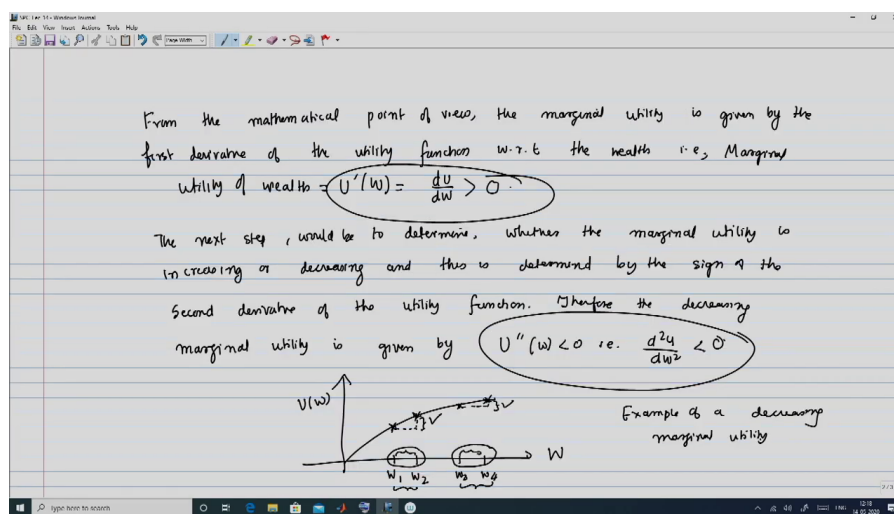 SPC Lec 14 - Windows Journal
File Edit View Insert Actions Tools Help
Page Width
From the mathematical point of view, the marginal utility is given by the
first derivative of the utility function w.r.t the wealth i.e, Marginal
utility of wealth = U'(W) = dU/dW > 0.
The next step, would be to determine, whether the marginal utility is
increasing or decreasing and this is determined by the sign of the
Second derivative of the utility function. Therefore the decreasing
marginal utility is given by U''(W) < 0 i.e. d²U/dW² < 0
U(W)
Example of a decreasing
marginal utility
W
W₁ W₂ W₃ W₄
2/3
Type here to search
ENG
12:18
14-05-2020